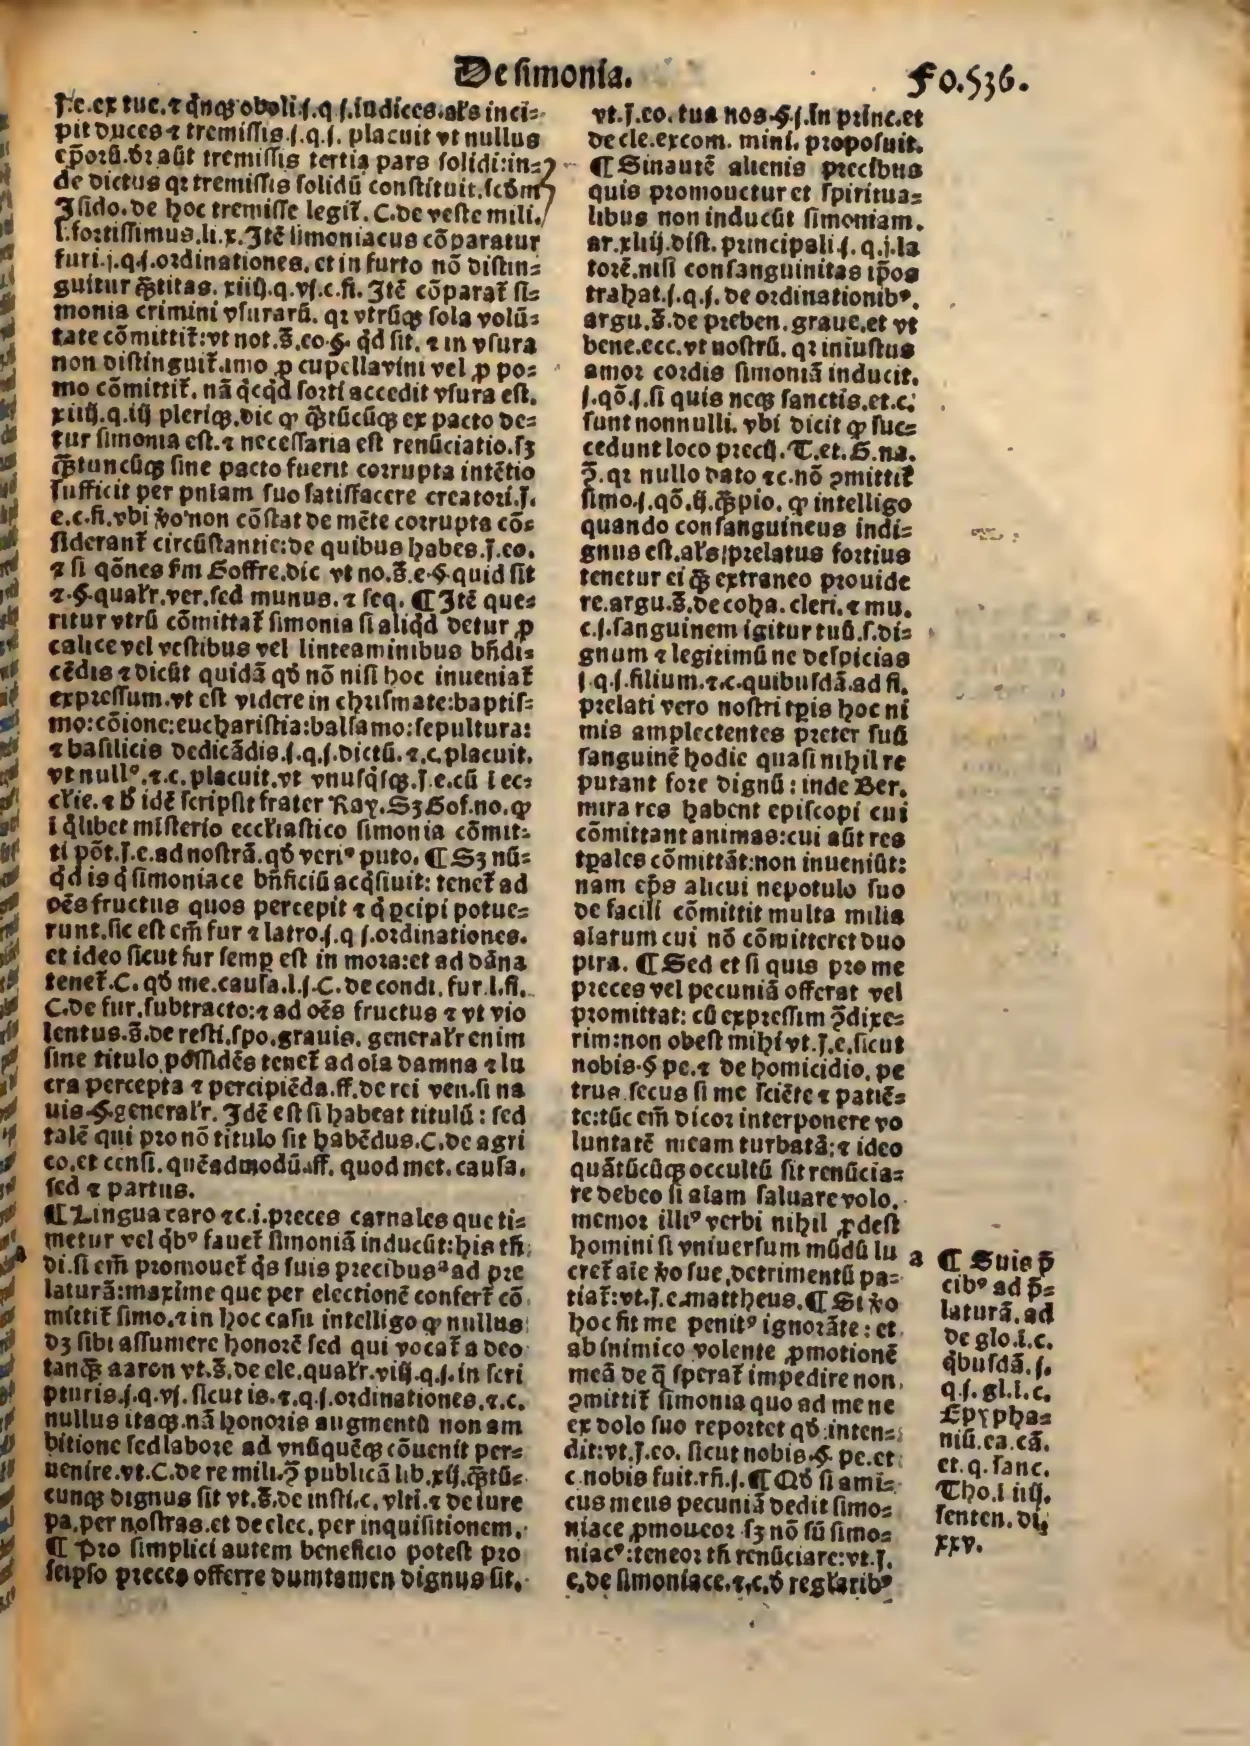 De simonia.
Fo.536.
ſ.e.ex tuc.⁊ qͥnqꝫ oboli.ſ.q ſ.iudices.al's inci-
pit duces ⁊ tremiſſis.ſ.q.ſ. placuit vt nullus
ep̄orū.dꝛ aūt tremiſſis tertia pars ſolidi:in-
de dictus qꝛ tremiſſis ſolidū conſtituit.ſcd̄m
Iſido.de hoc tremiſſe legit̄. C.de veſte mili.
l.fortiſſimus.li.x.Itē ſimoniacus cōparatur
furi.j.q.ſ.ordinationes.et in furto nō diſtin-
guitur q̄titas. xiiij.q.vj.c.fi. Itē cōparat̄ ſi-
monia crimini vſurarū. qꝛ vtrūqꝫ ſola volū-
tate cōmittit̄:vt not.ǯ.eo §. qd̄ ſit. ⁊ in vſura
non diſtinguit̄.imo ꝓ cupella vini vel ꝓ po-
mo cōmittit̄. nā qͥcqͥd ſorti accedit vſura eſt.
xiiij.q.iij pleriqꝫ.dic ꝙ q̄tūcūqꝫ ex pacto de-
tur ſimonia eſt.⁊ neceſſaria eſt renūciatio.ſꝫ
q̄tuncūqꝫ ſine pacto fuerit corrupta intētio
ſufficit per pniam ſuo ſatiſfacere creatori.J.
e.c.fi.vbi v̊o non cōſtat de mēte corrupta cō-
ſiderant̄ circūſtantie:de quibus habes.J.eo.
⁊ ſi qōnes ẜm Goffre.dic vt no.ǯ.e.§.quid ſit
⁊.§.qualr̄.ver.ſed munus.⁊ ſeq. ¶ Itē que-
ritur vtrū cōmittat̄ ſimonia ſi aliqͥd detur ꝓ
calice vel veſtibus vel linteaminibus bn̄di-
cēdis ⁊ dicūt quidā qd̄ nō niſi hoc inueniat̄
expreſſum.vt eſt videre in chriſmate:baptiſ-
mo:cōione:euchariſtia:balſamo:ſepultura:
⁊ baſilicis dedicādis.ſ.q.ſ.dictū.⁊.c.placuit.
vt nullꝰ.⁊.c.placuit.vt vnuſqͥſqꝫ.J.e.cū ī ec-
cl'ie.⁊ ꝺ̄ idē ſcripſit frater Ray. Sꝫ Gof.no.ꝙ
ī qͥlibet miſterio eccl'iaſtico ſimonia cōmit-
ti pōt.J.e.ad noſtrā.qd̄ veriꝰ puto. ¶ Sꝫ nū-
qͥd is qͥ ſimoniace bn̄ficiū acqͥſiuit: tenet̄ ad
oēs fructus quos percepit ⁊ qͥ ꝑcipi potue-
runt.ſic eſt em̄ fur ⁊ latro.ſ.q ſ.ordinationes.
et ideo ſicut fur ſemꝑ eſt in mora:et ad dāna
tenet̄.C. qd̄ me.cauſa.l.ſ.C.de condi. fur.l.fi.
C.de fur.ſubtracto:⁊ ad oēs fructus ⁊ vt vio
lentus.ǯ.de reſti.ſpo.grauis. generalr̄ enim
ſine titulo poſſidēs tenet̄ ad oīa damna ⁊ lu
cra percepta ⁊ percipiēda.ff.de rei ven.ſi na
uis.§.generalr̄. Idē eſt ſi habeat titulū: ſed
talē qui pro nō titulo ſit habēdus.C.de agri
co.et cenſi.quēadmodū.ff. quod met.cauſa.
ſed ⁊ partus.
¶ Lingua raro ⁊c.i.preces carnales que ti-
metur vel qͥbꝰ fauet̄ ſimoniā inducūt:his tn̄
di.ſi em̄ promouet̄ qͥs ſuis precibusª ad pre
laturā:maxime que per electionē confert̄ cō
mittit̄ ſimo.⁊ in hoc caſu intelligo ꝙ nullus
dꝫ ſibi aſſumere honorē ſed qui vocat̄ a deo
tanq̄ aaron vt.ǯ.de ele.qualr̄.viij.q.ſ.in ſcri
pturis.ſ.q.vſ. ſicut is.⁊.q.ſ.ordinationes.⁊.c.
nullus itaqꝫ.nā honoris augmentū non am
bitione ſed labore ad vnūquēqꝫ cōuenit per-
uenire.vt.C.de re mili.ꝯ publicā lib.xij.q̄tū-
cunqꝫ dignus ſit vt.ǯ.de inſti.c.vlti.⁊ de iure
pa.per noſtras.et de elec.per inquiſitionem.
¶ Pro ſimplici autem beneficio poteſt pro
ſeipſo preces offerre dumtamen dignus ſit.
vt.J.eo. tua nos.§.ſ.In princ.et
de cle.excom. mini. propoſuit.
¶ Sin autē alienis precibus
quis promouetur et ſpiritua-
libus non inducūt ſimoniam.
ar.xliij.diſt. principali.ſ. q.j.la
torē.niſi conſanguinitas ip̄os
trahat.ſ.q.ſ. de ordinationibꝰ.
argu.ǯ.de preben.graue.et vt
bene.ecc.vt noſtrū. qꝛ iniuſtus
amor cordis ſimoniā inducit.
ſ.qō.ſ.ſi quis neqꝫ ſanctis.et.c.
ſunt nonnulli. vbi dicit ꝙ ſuc-
cedunt loco precij. T.et.G.na.
ꝯ.qꝛ nullo dato ⁊c.nō ꝯmittit̄
ſimo.ſ.qō.ij.q̄pio. ꝙ intelligo
quando conſanguineus indi-
gnus eſt.al's prelatus fortius
tenetur ei q̄ extraneo prouide
re.argu.ǯ.de coha. cleri.⁊ mu.
c.ſ.ſanguinem igitur tuū.ſ.di-
gnum ⁊ legitimū ne deſpicias
ſ.q.ſ.filium.⁊.c.quibuſdā.ad fi.
prelati vero noſtri tꝑis hoc ni
mis amplectentes preter ſuū
ſanguinē hodie quaſi nihil re
putant fore dignū: inde Ber.
mira res habent epiſcopi cui
cōmittant animas:cui aūt res
tꝑales cōmittāt:non inueniūt:
nam ep̄s alicui nepotulo ſuo
de facili cōmittit multa milia
alarum cui nō cōmitteret duo
pira. ¶ Sed et ſi quis pro me
preces vel pecuniā offerat vel
promittat: cū expreſſim ꝯdixe-
rim:non obeſt mihi vt.J.e.ſicut
nobis.§ pe.⁊ de homicidio. pe
trus ſecus ſi me ſciēte ⁊ patiē-
te:tūc em̄ dicor interponere vo
luntatē meam turbatā:⁊ ideo
quātūcūqꝫ occultū ſit renūcia-
re debeo ſi aīam ſaluare volo.
memor illiꝰ verbi nihil ꝓdeſt
homini ſi vniuerſum mūdū lu
cret̄ aīe v̊o ſue detrimentū pa-
tiat̄:vt.J.e.mattheus. ¶ Si v̊o
hoc fit me penitꝰ ignorāte: et
ab inimico volente ꝓmotionē
meā de q̄ ſperat̄ impedire non
ꝯmittit̄ ſimonia quo ad me ne
ex dolo ſuo reportet qd̄ inten-
dit:vt.J.eo. ſicut nobis.§. pe.et
c.nobis fuit.rn̄.ſ. ¶ Qd̄ ſi ami-
cus meus pecuniā dedit ſimo-
niace ꝓmoueor ſꝫ nō ſū ſimo-
niacꝰ:teneor tn̄ renūciare:vt.J.
e.de ſimoniace.⁊.c.ꝺ̄ regl'aribꝰ
a
a
¶ Suis p̄
cibꝰ ad p̄-
laturā.ad
de glo.i.c.
qͥbuſdā.ſ.
q.ſ. gl.i.c.
Epypha-
niū.ea.cā.
et.q.ſanc.
Tho.i iiij.
ſenten.di.
xxv.